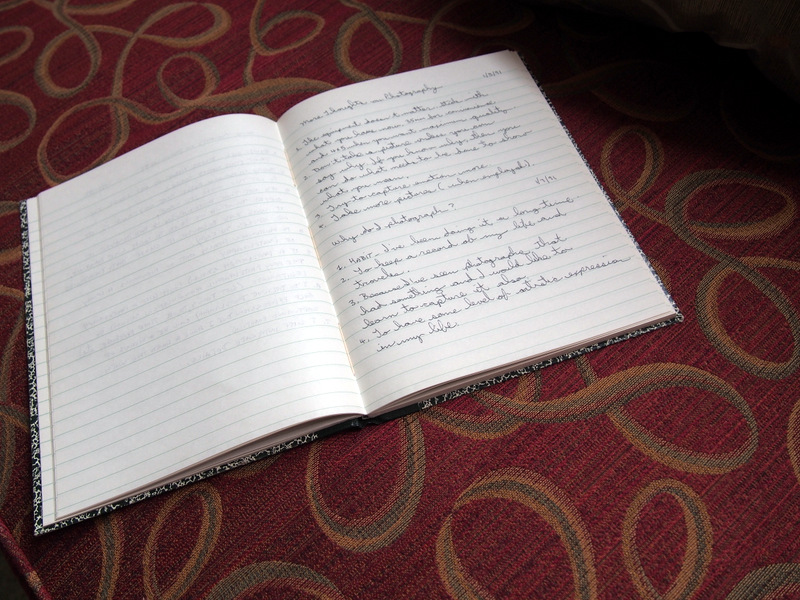 1/3/91
More Thoughts on Photography
1. The equipment doesn't matter, stick with
what you have now. 35mm for convenience
and 4x5 when you want maximum quality.
2. Don't take a picture unless you can
say why. If you know why, then you
can do what needs to be done to show
what you mean.
3. Try to capture emotion more.
4. Take more pictures (when employed).
1/4/91
Why do I photograph?
1. Habit - I've been doing it a long time.
2. To keep a record of my life and
travels.
3. Because I've seen photographs that
had something and I would like to
learn to capture it also.
4. To have some level of artistic expression
in my life.